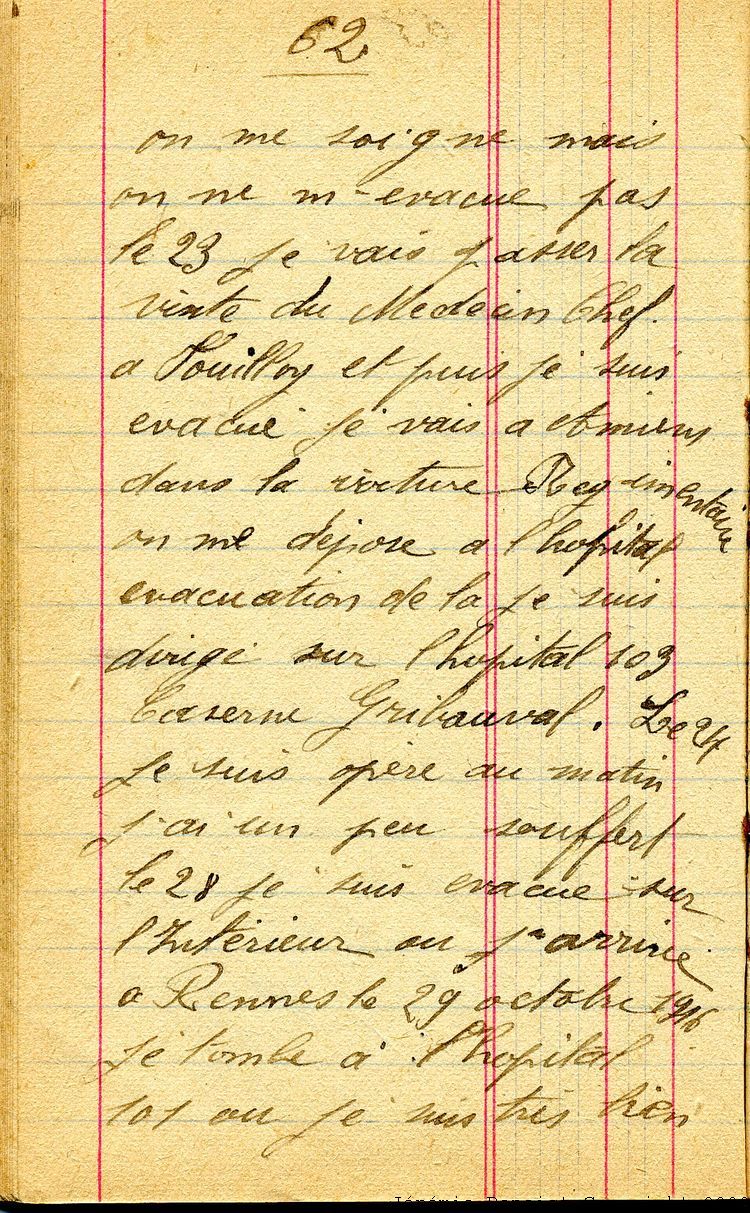 62
on me soigne mais
on ne m-evacue pas
le 23 je vais passer la
visite du Medecin Chef.
a Fouilloy et puis je suis
evacué je vais a Amiens
dans la voiture Regimentaire
on me dépose a l'hopital
evacuation de la je suis
dirigé sur l'hopital 103
Caserne Gribauval. Le 24
je suis opéré au matin
j'ai un peu souffert
le 28 je suis evacué sur
l'Intérieur ou j'arrive
a Rennes le 29 octobre 1916
je tombe à l'hopital
101 ou je suis très bien